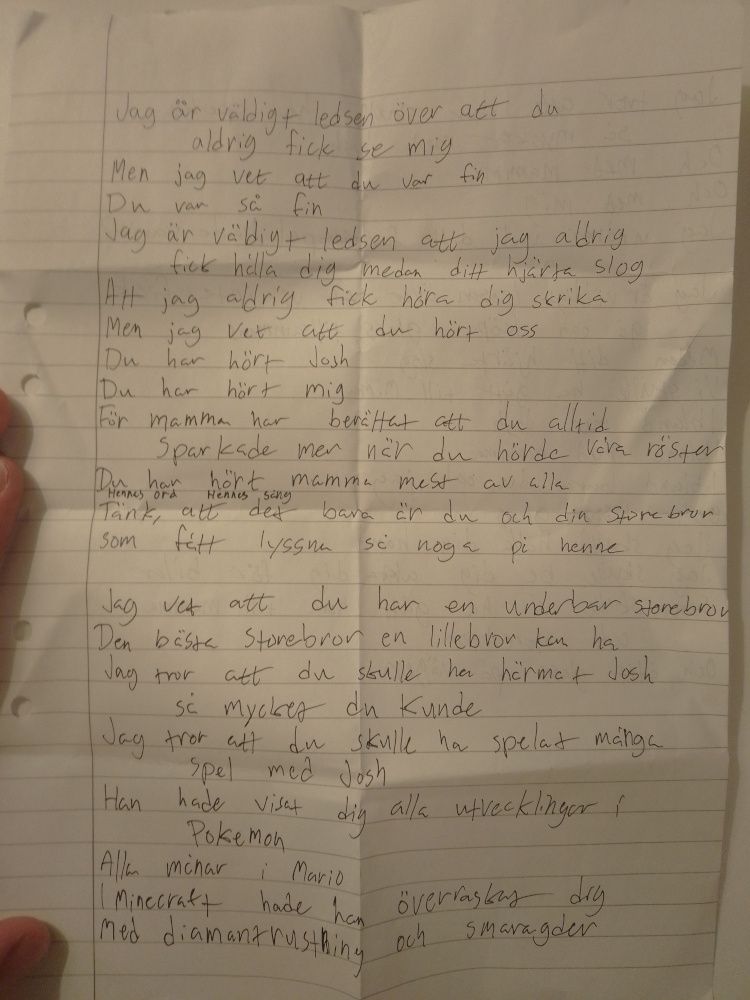 Jag är väldigt ledsen över att du
aldrig fick se mig
Men jag vet att du var fin
Du var så fin
Jag är väldigt ledsen att jag aldrig
fick hålla dig medan ditt hjärta slog
Att jag aldrig fick höra dig skrika
Men jag vet att du hört oss
Du har hört Josh
Du har hört mig
För mamma har berättat att du alltid
Sparkade mer när du hörde våra röster
Du har hört mamma mest av alla
Hennes ord Hennes sång
Tänk, att det bara är du och din storebror
som fått lyssna så noga på henne
Jag vet att du har en underbar storebror
Den bästa storebror en lillebror kan ha
Jag tror att du skulle ha härmat Josh
så mycket du kunde
Jag tror att du skulle ha spelat många
spel med Josh
Han hade visat dig alla utvecklingar i
Pokemon
Alla månar i Mario
I Minecraft hade han överraskat dig
Med diamantrustning och smaragder